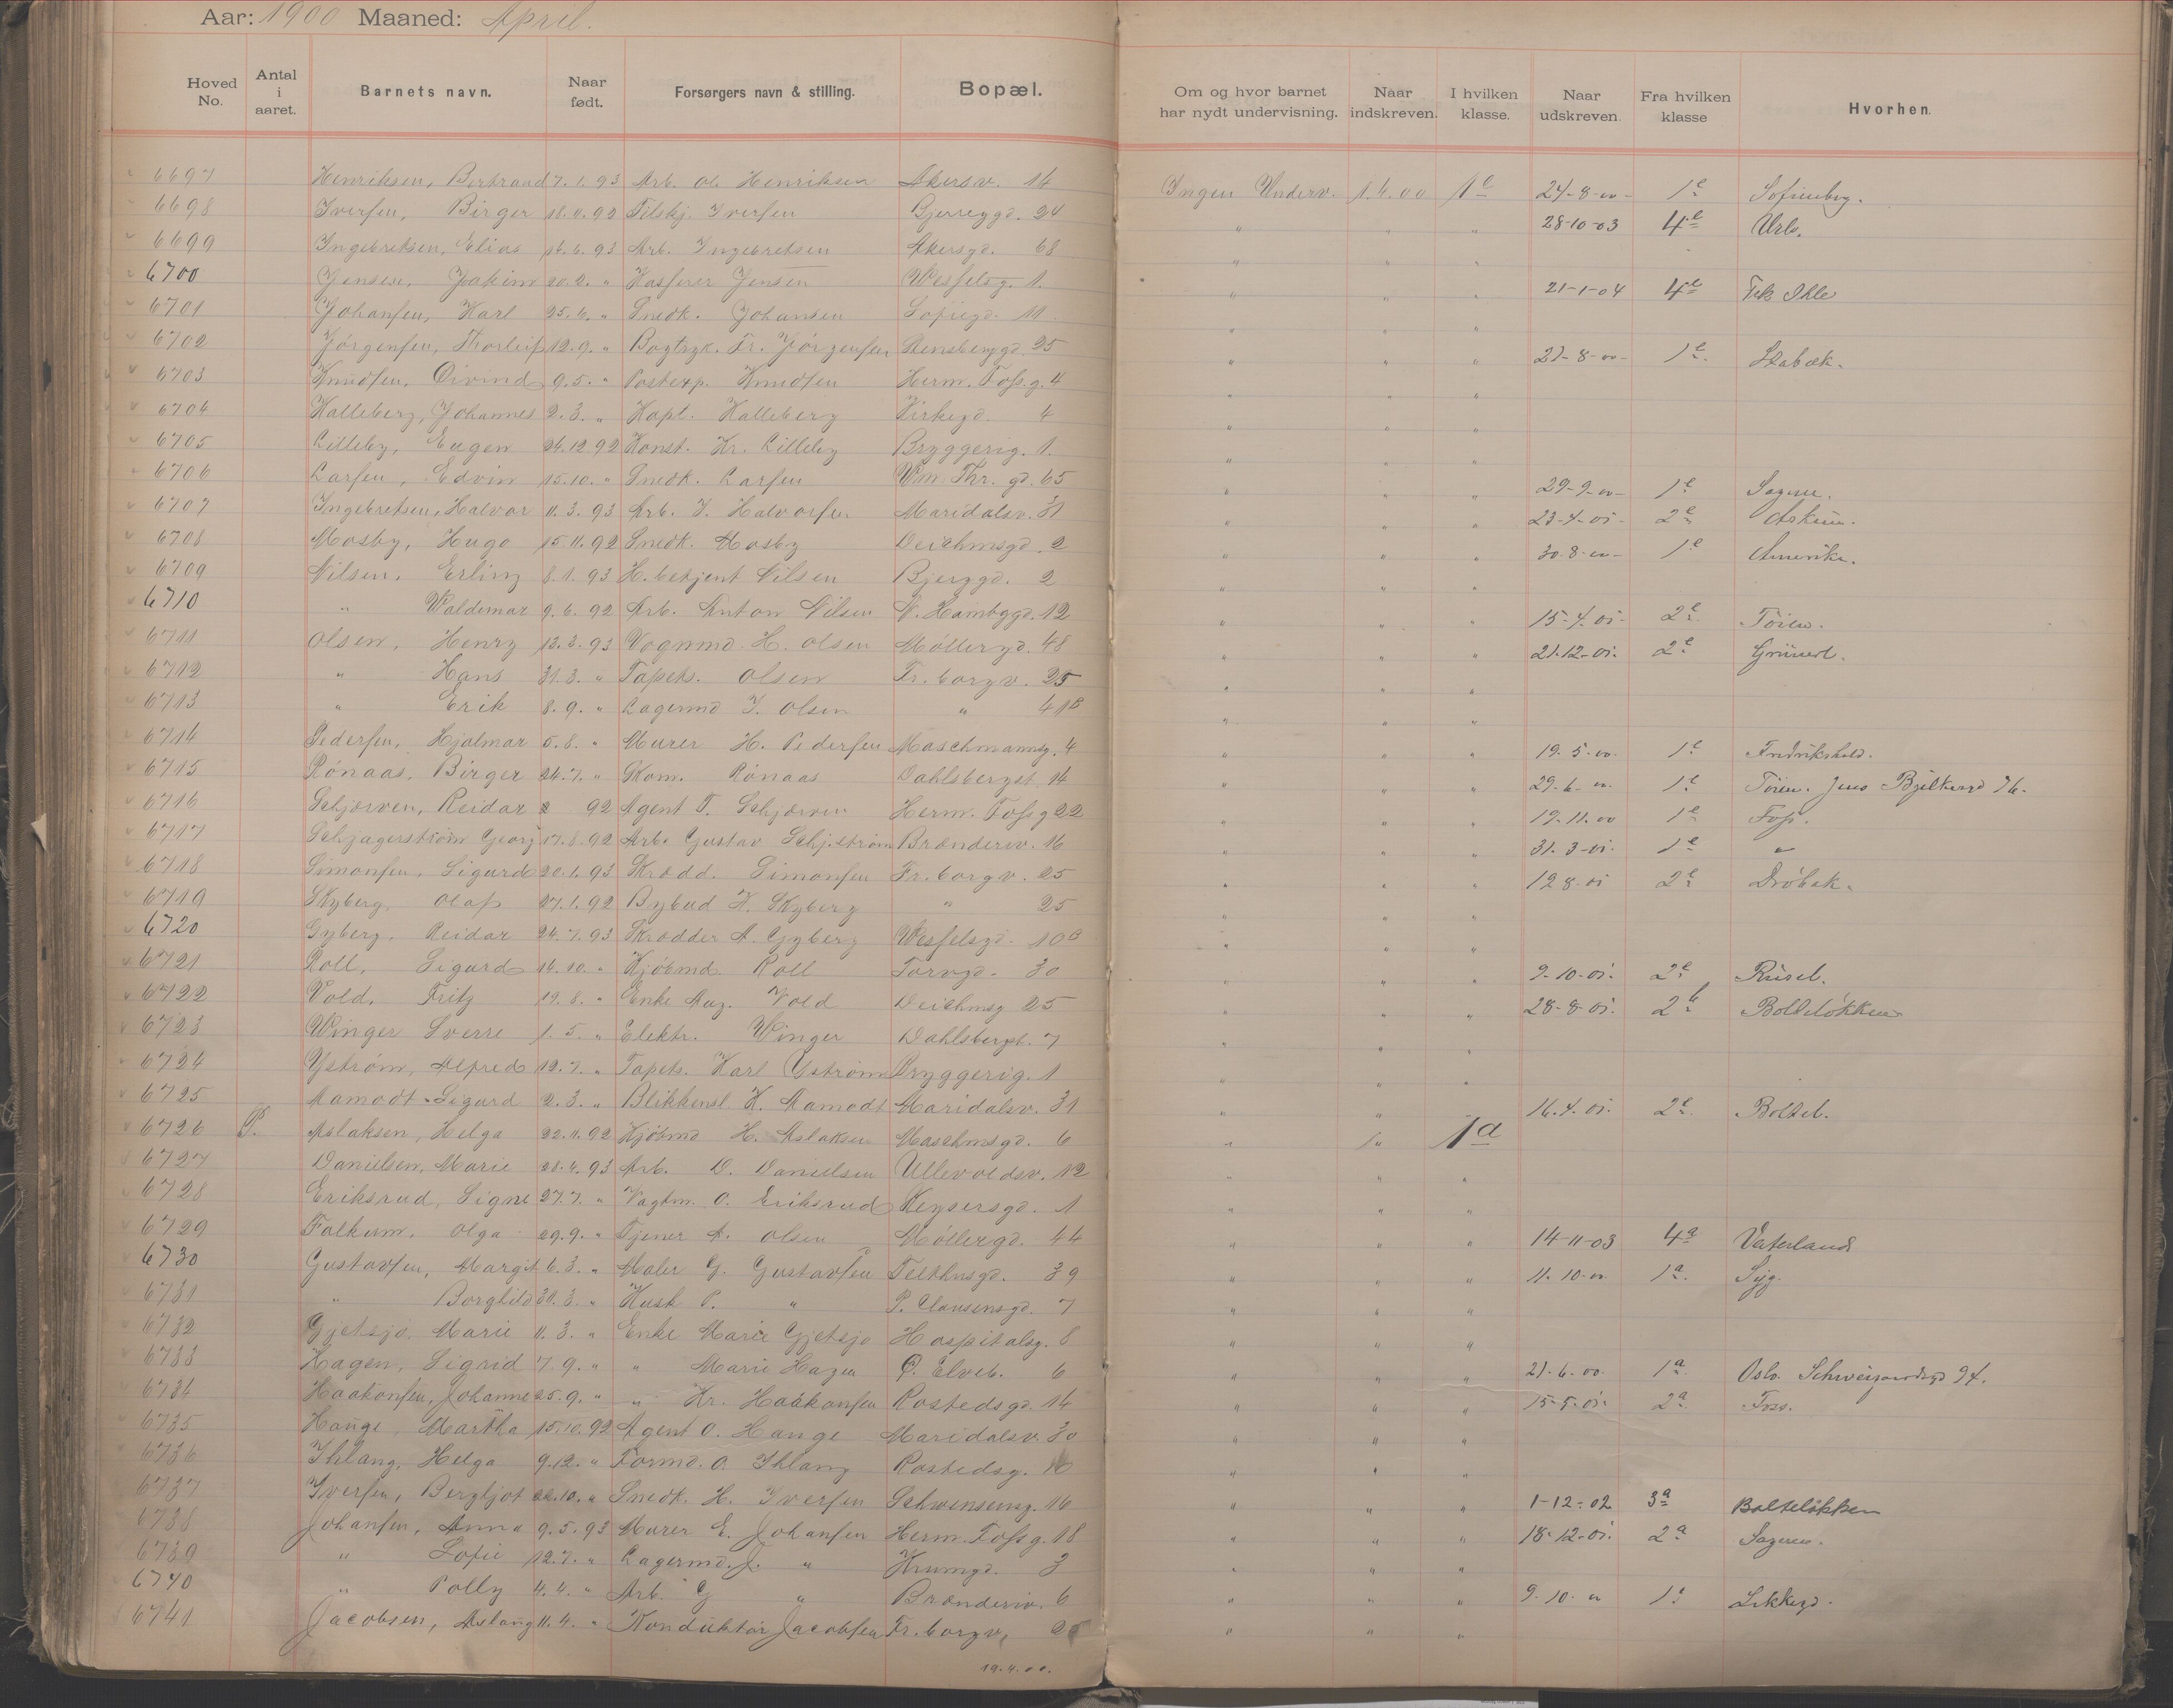 Aar: 1900 Maaned: April.
Hoved No. Antal i aaret. Barnets navn. Naar født. Forsørgers navn & stilling. Bopæl. Om og hvor barnet har nydt undervisning. Naar indskreven. I hvilken klasse. Naar udskreven. Fra hvilken klasse Hvorhen.
6697 Henriksen, Bertrand 7.1.93 Arb. Ol. Henriksen Akersv. 14 Ingen Underv. 1.4.00 1e 24-8-00- 1e Sofienbeg.
6698 Iversen, Birger 18.11.92 Filskj. Iversen Bjerregd. 24 " " " 28-10-03 4e Uels.
6699 Ingebretsen, Elias 14.6.93 Arb. Ingebretsen Akersgd. 68 " " "
6700 Jensen, Joakim 20.2. " Kasserer Jensen Wesselsg. 1. " " " 21-1-04 4e Frk Ihle
6701 Johansen, Karl 25.6. " Snedk. Johansen Sofiegd. 11. " " "
6702 Jørgensen, Thorleif 12.9. " Bogtryk. Fr. Jørgensen Stensberggd. 25 " " " 21-8-00- 1e. Stabæk.
6703 Knudsen, Öivind 9.5. " Postexp. Knudsen Herm. Fossg. 4 " " "
6704 Kalleberg, Johannes 2.3. " Kapt. Kalleberg Kirkegd. 4 " " "
6705 Lilleby, Eugen 24.12.92 Konst. Kr. Lilleby Bryggerig. 1. " " "
6706 Larsen, Edvin 15.10. " Snedk. Larsen Wm. Thr. gd. 65 " " " 29-9-00- 1e Sagene.
6707 Ingebretsen, Halvor 11.3.93 Arb. I. Halvorsen Maridalsv. 31 " " " 23-4-01- 2e Askim.
6708 Mosby, Hugo 15.11.92 Snedk. Mosby Deichmsgd. 2 " " " 30-8-00- 1e Amerika.
6709 Nilsen, Erling 8.1.93 H. betjent Nilsen Bjerggd. 2 " " "
6710 " Waldemar 9.6.92 Arb. Anton Nilsen N. Hambggd. 12 " " " 15-4-01- 2e Töien.
6711 Olsen, Henry 13.3.93 Vognmd. H. Olsen Møllergd. 48 " " " 21-12-01. 2e Grünerl.
6712 " Hans 31.3. " Tapets. Olsen Fr. borgv. 25 " " "
6713 " Erik 8.9. " Lagermd I. Olsen " 41B " " "
6714 Pedersen, Hjalmar 5.8. " Murer H. Pedersen Maschmannsg. 4 " " " 19-5-00. 1e Fredrikshald.
6715 Rønaas, Birger 24.7. " Skom. Rønaas Dahlsbergst. 14 " " " 29-6-00. 1e Töien. Jens Bjelkesgd 76.
6716 Schjorven, Reidar 92 Agent T. Schjorven Herm. Fossg 22 " " " 19.11.00 1e Foss.
6717 Schjagerström Georg 17.8.92 Arb. Gustav Schj.ström Brænderiv. 16 " " " 31.3-01. 1e "
6718 Simonsen, Sigurd 20.1.93 Skrædd. Simonsen Fr. borgv. 25 " " " 12 8-01 2e Drøbak.
6719 Skyberg, Olaf 27.1.92 Bybud K. Skyberg " 25 " " "
6720 Gyberg, Reidar 24.7.93 Skrædder A. Gyberg Wesselsgd. 10B " " "
6721 Roll, Sigurd 14.10. " Kjøbmd. Roll Torvgd. 30 " " " 9-10-01. 2e Rusel.
6722 Vold, Fritz 19.8. " Enke Aug. Vold Deichmsg 25 " " " 28-8-01. 2e Bolteløkken
6723 Winger Sverre 1.5. " Elektr. Winger Dahlsbergst. 7 " " "
6724 Yström, Alfred 12.7. " Tapets. Karl Yström Bryggerig. 1 " " "
6725 Aamodt Sigurd 2.3. " Blikkensl. K. Aamodt Maridalsv. 31 " " " 16.4.01. 2e Boltel.
6726 P. Aslaksen, Helga 22.11.92 Kjøbmd H. Aslaksen Maschmsgd. 6 " " 1a
6727 Danielsen, Marie 28.4.93 Arb. D. Danielsen Ullevoldsv. 12 " " "
6728 Eriksrud, Signe 27.7. " Vagtm. O. Eriksrud Keysersgd. 1 " " "
6729 Falkum, Olga 29.9. " Tjener A. Olsen Møllergd. 44 " " " 14-11-03 4a Vaterland
6730 Gustavsen, Margit 6.3. " Maler G. Gustavsen Telthusgd. 39 " " " 11.10-00. 1a. Syg.
6731 " Borghild 30.3. " Kusk P. " P. Clausensgd. 7 " " "
6732 Gjetsjø, Marie 11.3. " Enke Marie Gjetsjø Hospitalsg. 8 " " "
6733 Hagen, Sigrid 7.9. " " Marie Hagen Ø. Elveb. 6 " " " 21.6.00. 1a. Oslo. Schweigaardsgd 94.
6734 Haakonsen, Johanne 25.9. " " Kr. Haakonsen Rostedsgd. 14 " " " 15-5-01. 2a. Foss.
6735 Hauge, Martha 15.10.92 Agent O. Hauge Maridalsv. 30 " " "
6736 Ihlang, Helga 9.12. " Formd. O. Ihlang Rostedsg. " " "
6737 Iversen, Bergljot 22.10. " Snedk. H. Iversen Schwensensg. 16 " " " 1-12-02 3a Bolteløkken
6738 Johansen, Anna 9.5.93 Murer E. Johansen Herm. Fossg. 18 " " " 18-12-01. 2a Sagenes.
6739 " Sofie 12.7. " Lagermd. J. " Krumgd. 3 " " "
6740 " Polly 4.4. " Arb. G " Brænderiv. 6 " " " 9.10-00 1a Lakkegd.
6741 Jacobsen, Aslaug 11.4. " Konduktør Jacobsen Fr. borgv. " " "
19.4.00.